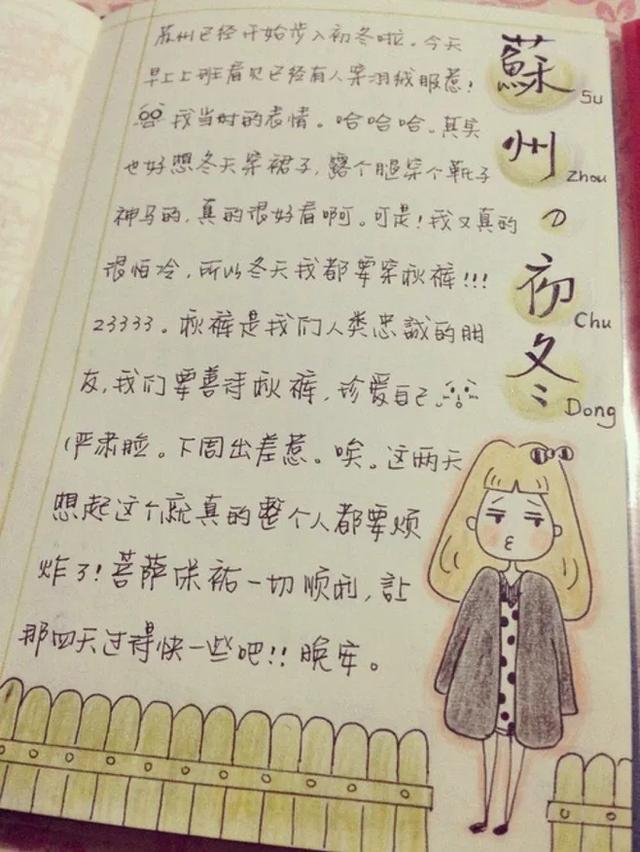 苏州已经开始步入初冬啦。今天
早上上班看见已经有人穿羽绒服惹！
我当时的表情。哈哈哈。其实
也好想冬天穿裙子，露个腿穿个靴子
神马的，真的很好看啊。可是！我又真的
很怕冷，所以冬天我都要穿秋裤!!!
23333。秋裤是我们人类忠誠的朋
友，我们要善待秋裤，珍爱自己
(严肃脸。下周出差惹。唉。这两天
想起这个就真的整个人都要烦
炸了！菩萨保祐一切顺利，让
那四天过得快一些吧!!晚安。
蘇 Su
州 Zhou
の
初 Chu
冬 Dong